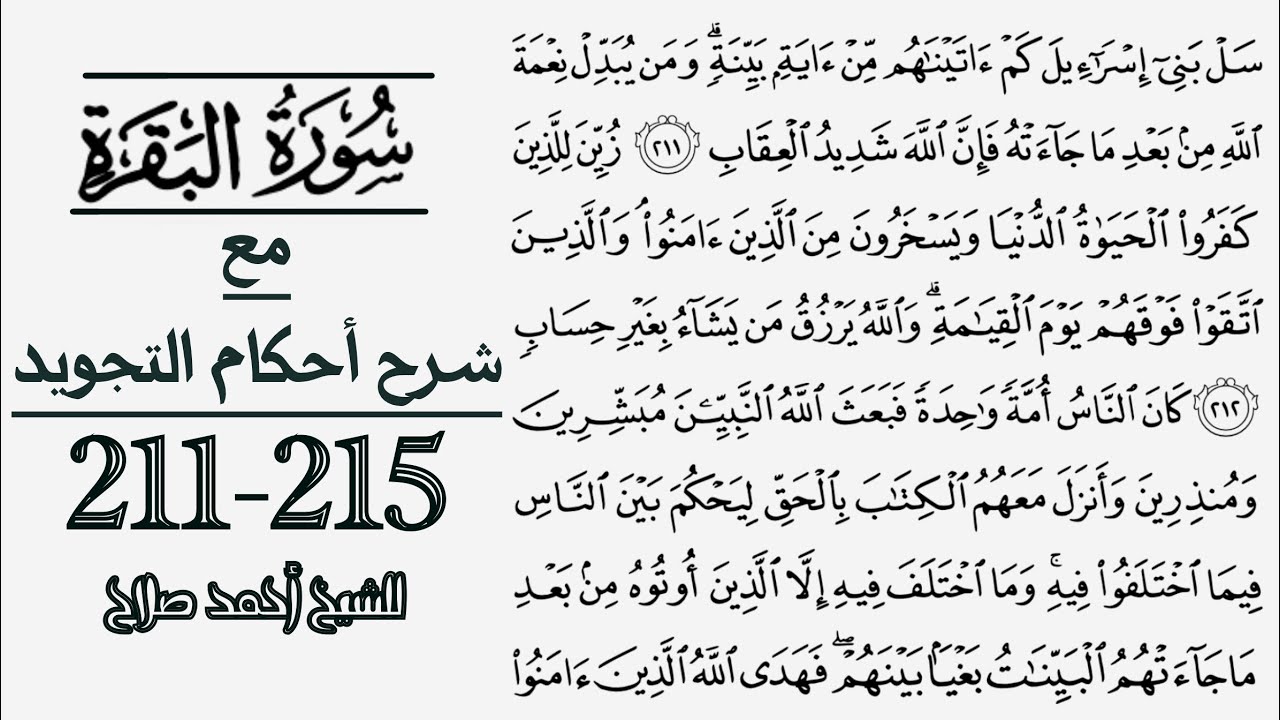 سُورَةُ البَقَرَةِ
مع
شرح أحكام التجويد
211-215
للشيخ أحمد صلاح
سَلۡ بَنِيٓ إِسۡرَٰٓءِيلَ كَمۡ ءَاتَيۡنَٰهُم مِّنۡ ءَايَةِۭ بَيِّنَةٖۗ وَمَن يُبَدِّلۡ نِعۡمَةَ
ٱللَّهِ مِنۢ بَعۡدِ مَا جَآءَتۡهُ فَإِنَّ ٱللَّهَ شَدِيدُ ٱلۡعِقَابِ ٢١١ زُيِّنَ لِلَّذِينَ
كَفَرُواْ ٱلۡحَيَوٰةُ ٱلدُّنۡيَا وَيَسۡخَرُونَ مِنَ ٱلَّذِينَ ءَامَنُواْۘ وَٱلَّذِينَ
ٱتَّقَوۡاْ فَوۡقَهُمۡ يَوۡمَ ٱلۡقِيَٰمَةِۗ وَٱللَّهُ يَرۡزُقُ مَن يَشَآءُ بِغَيۡرِ حِسَابٖ
٢١٢ كَانَ ٱلنَّاسُ أُمَّةٗ وَٰحِدَةٗ فَبَعَثَ ٱللَّهُ ٱلنَّبِيِّـۧنَ مُبَشِّرِينَ
وَمُنذِرِينَ وَأَنزَلَ مَعَهُمُ ٱلۡكِتَٰبَ بِٱلۡحَقِّ لِيَحۡكُمَ بَيۡنَ ٱلنَّاسِ
فِيمَا ٱخۡتَلَفُواْ فِيهِۚ وَمَا ٱخۡتَلَفَ فِيهِ إِلَّا ٱلَّذِينَ أُوتُوهُ مِنۢ بَعۡدِ
مَا جَآءَتۡهُمُ ٱلۡبَيِّنَٰتُ بَغۡيَۢا بَيۡنَهُمۡۖ فَهَدَى ٱللَّهُ ٱلَّذِينَ ءَامَنُواْ